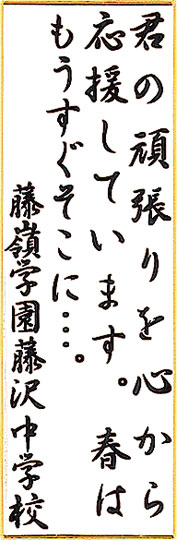 君の頑張りを心から
応援しています。 春は
もうすぐそこに…。
藤嶺学園藤沢中学校